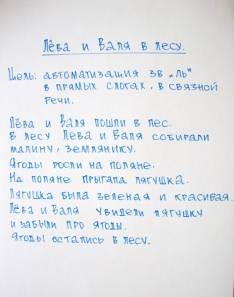 Лёва и Валя в лесу.
Цель: автоматизация зв „ль"
в прямых слогах, в связной
речи.
Лёва и Валя пошли в лес.
В лесу Лёва и Валя собирали
малину, землянику.
Ягоды росли на поляне.
На поляне прыгала лягушка.
Лягушка была зеленая и красивая.
Лёва и Валя увидели лягушку
и забыли про ягоды.
Ягоды остались в лесу.